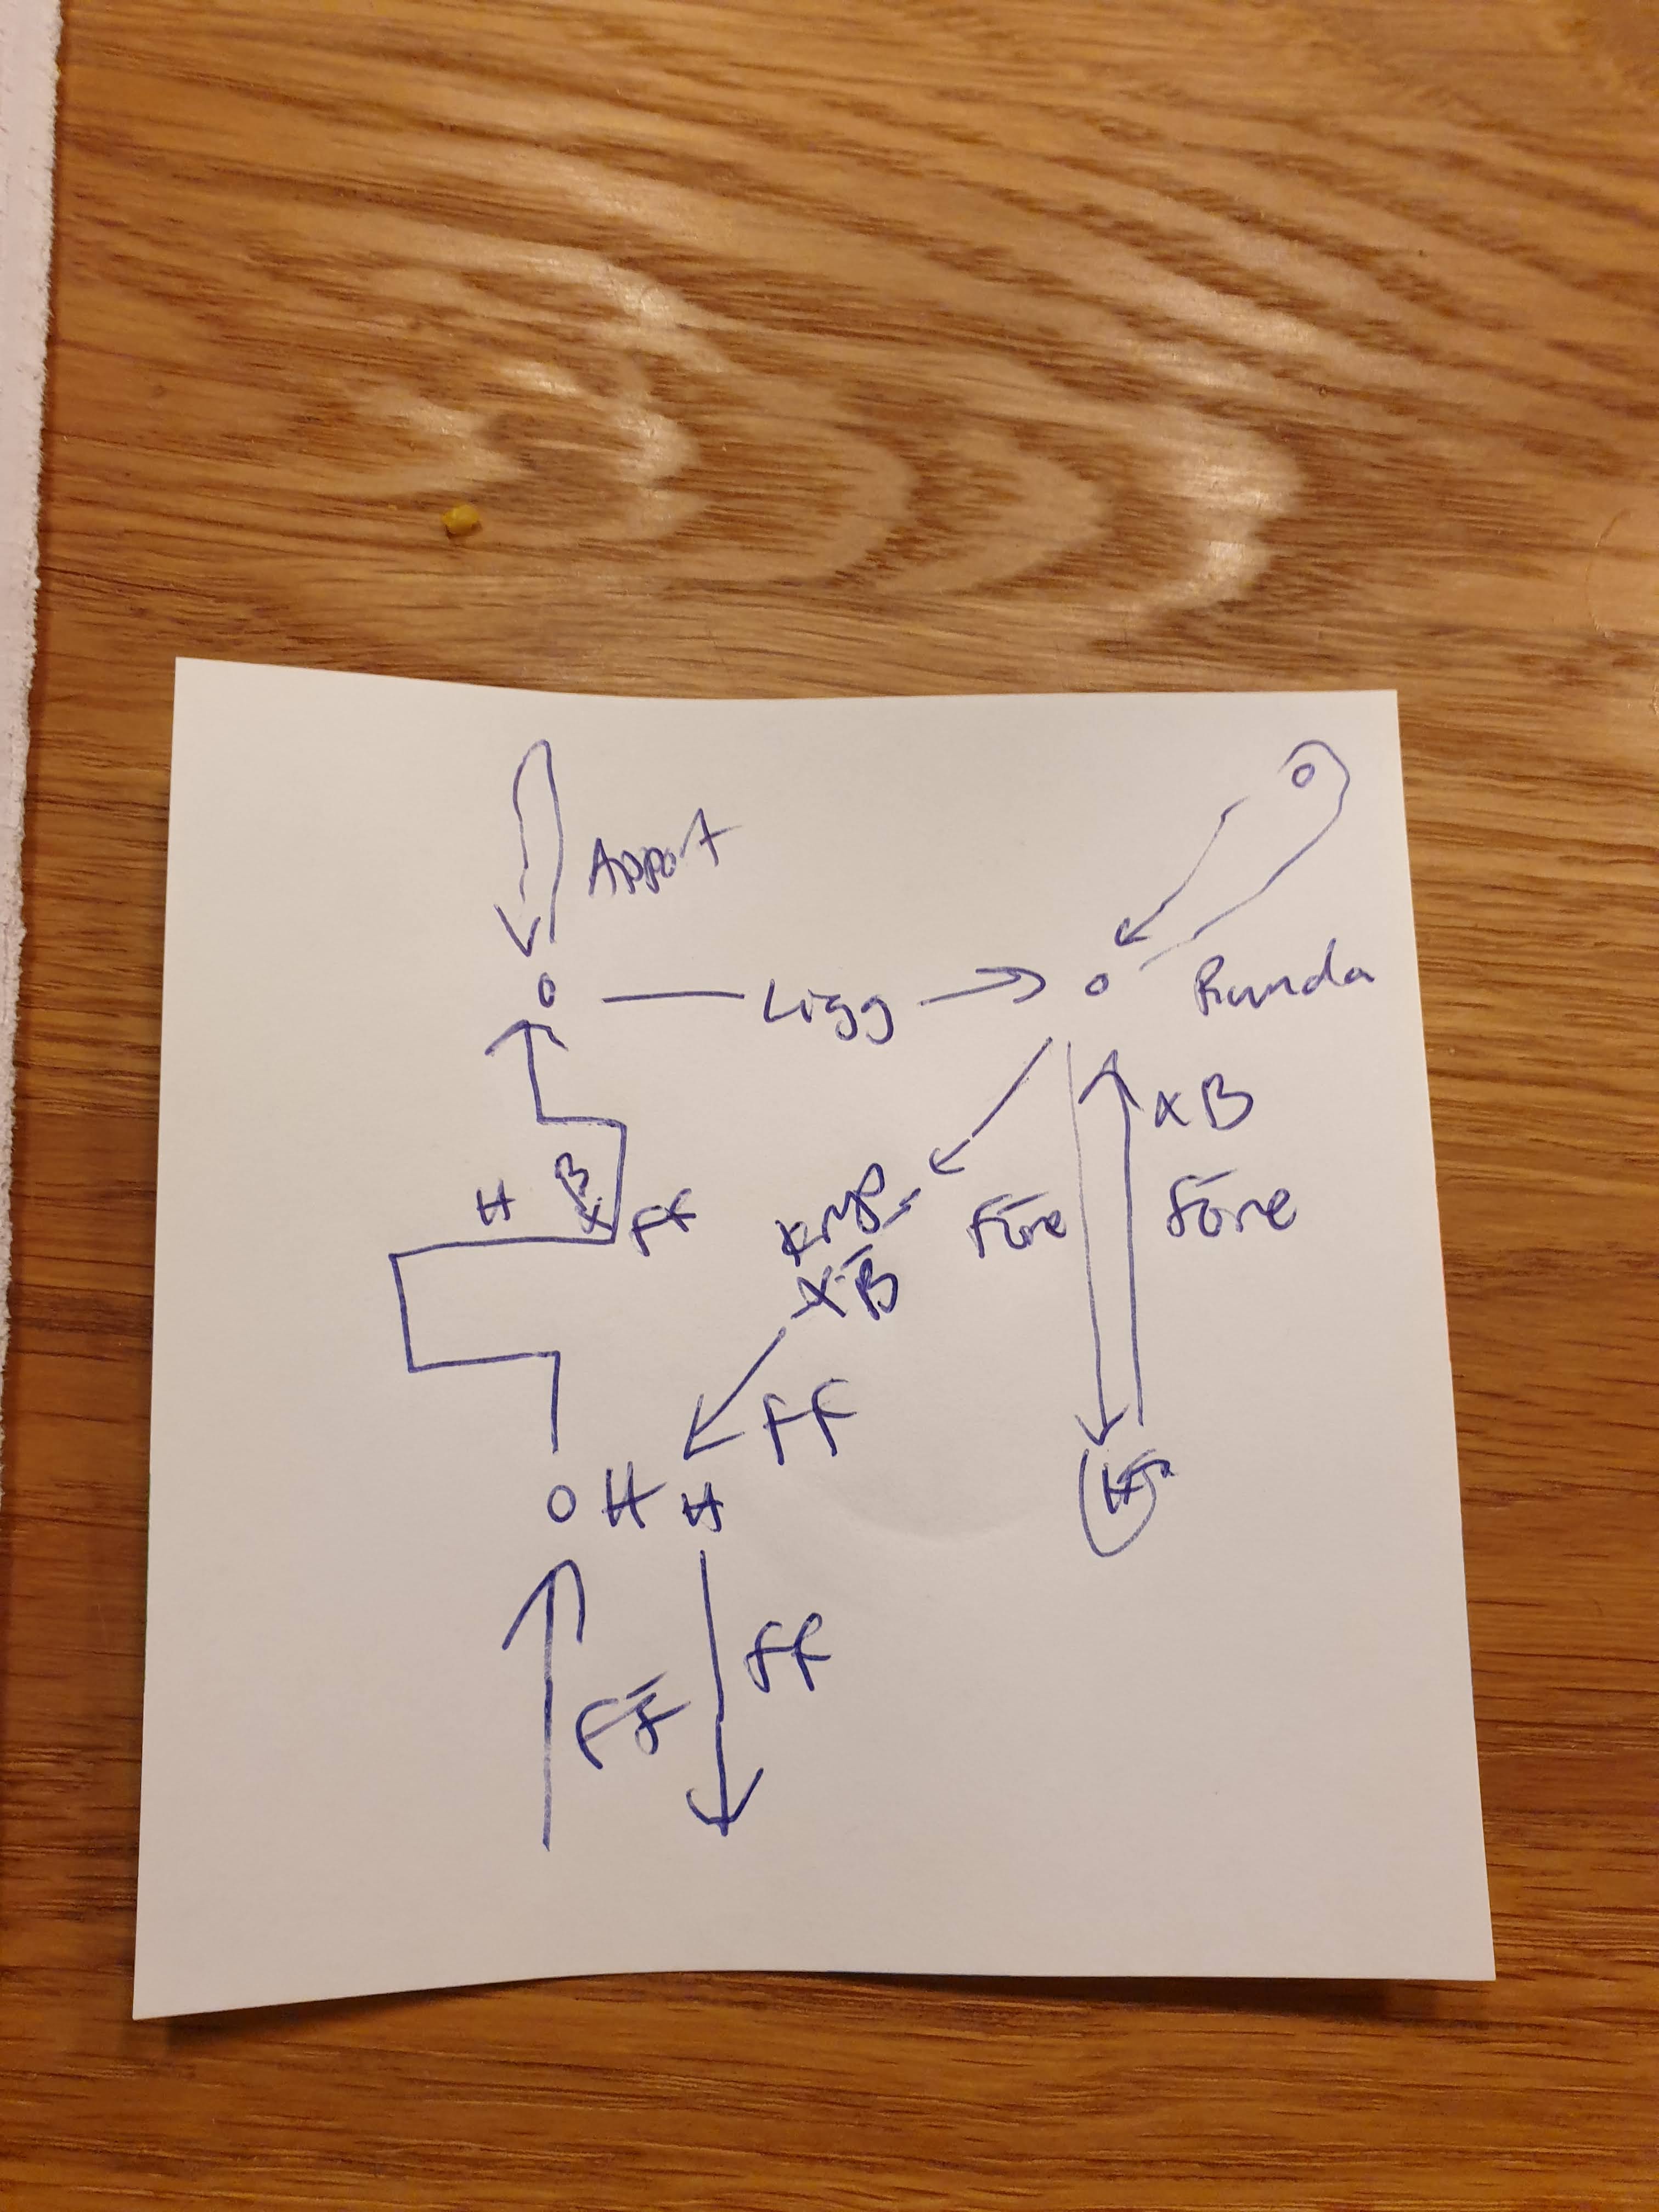 Apport
Ligg
Runda
XB
H
B
X
FF
Före
Före
XB
FF
H H
FF
FF